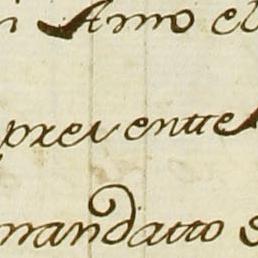 Anno el
preventte
mandatto